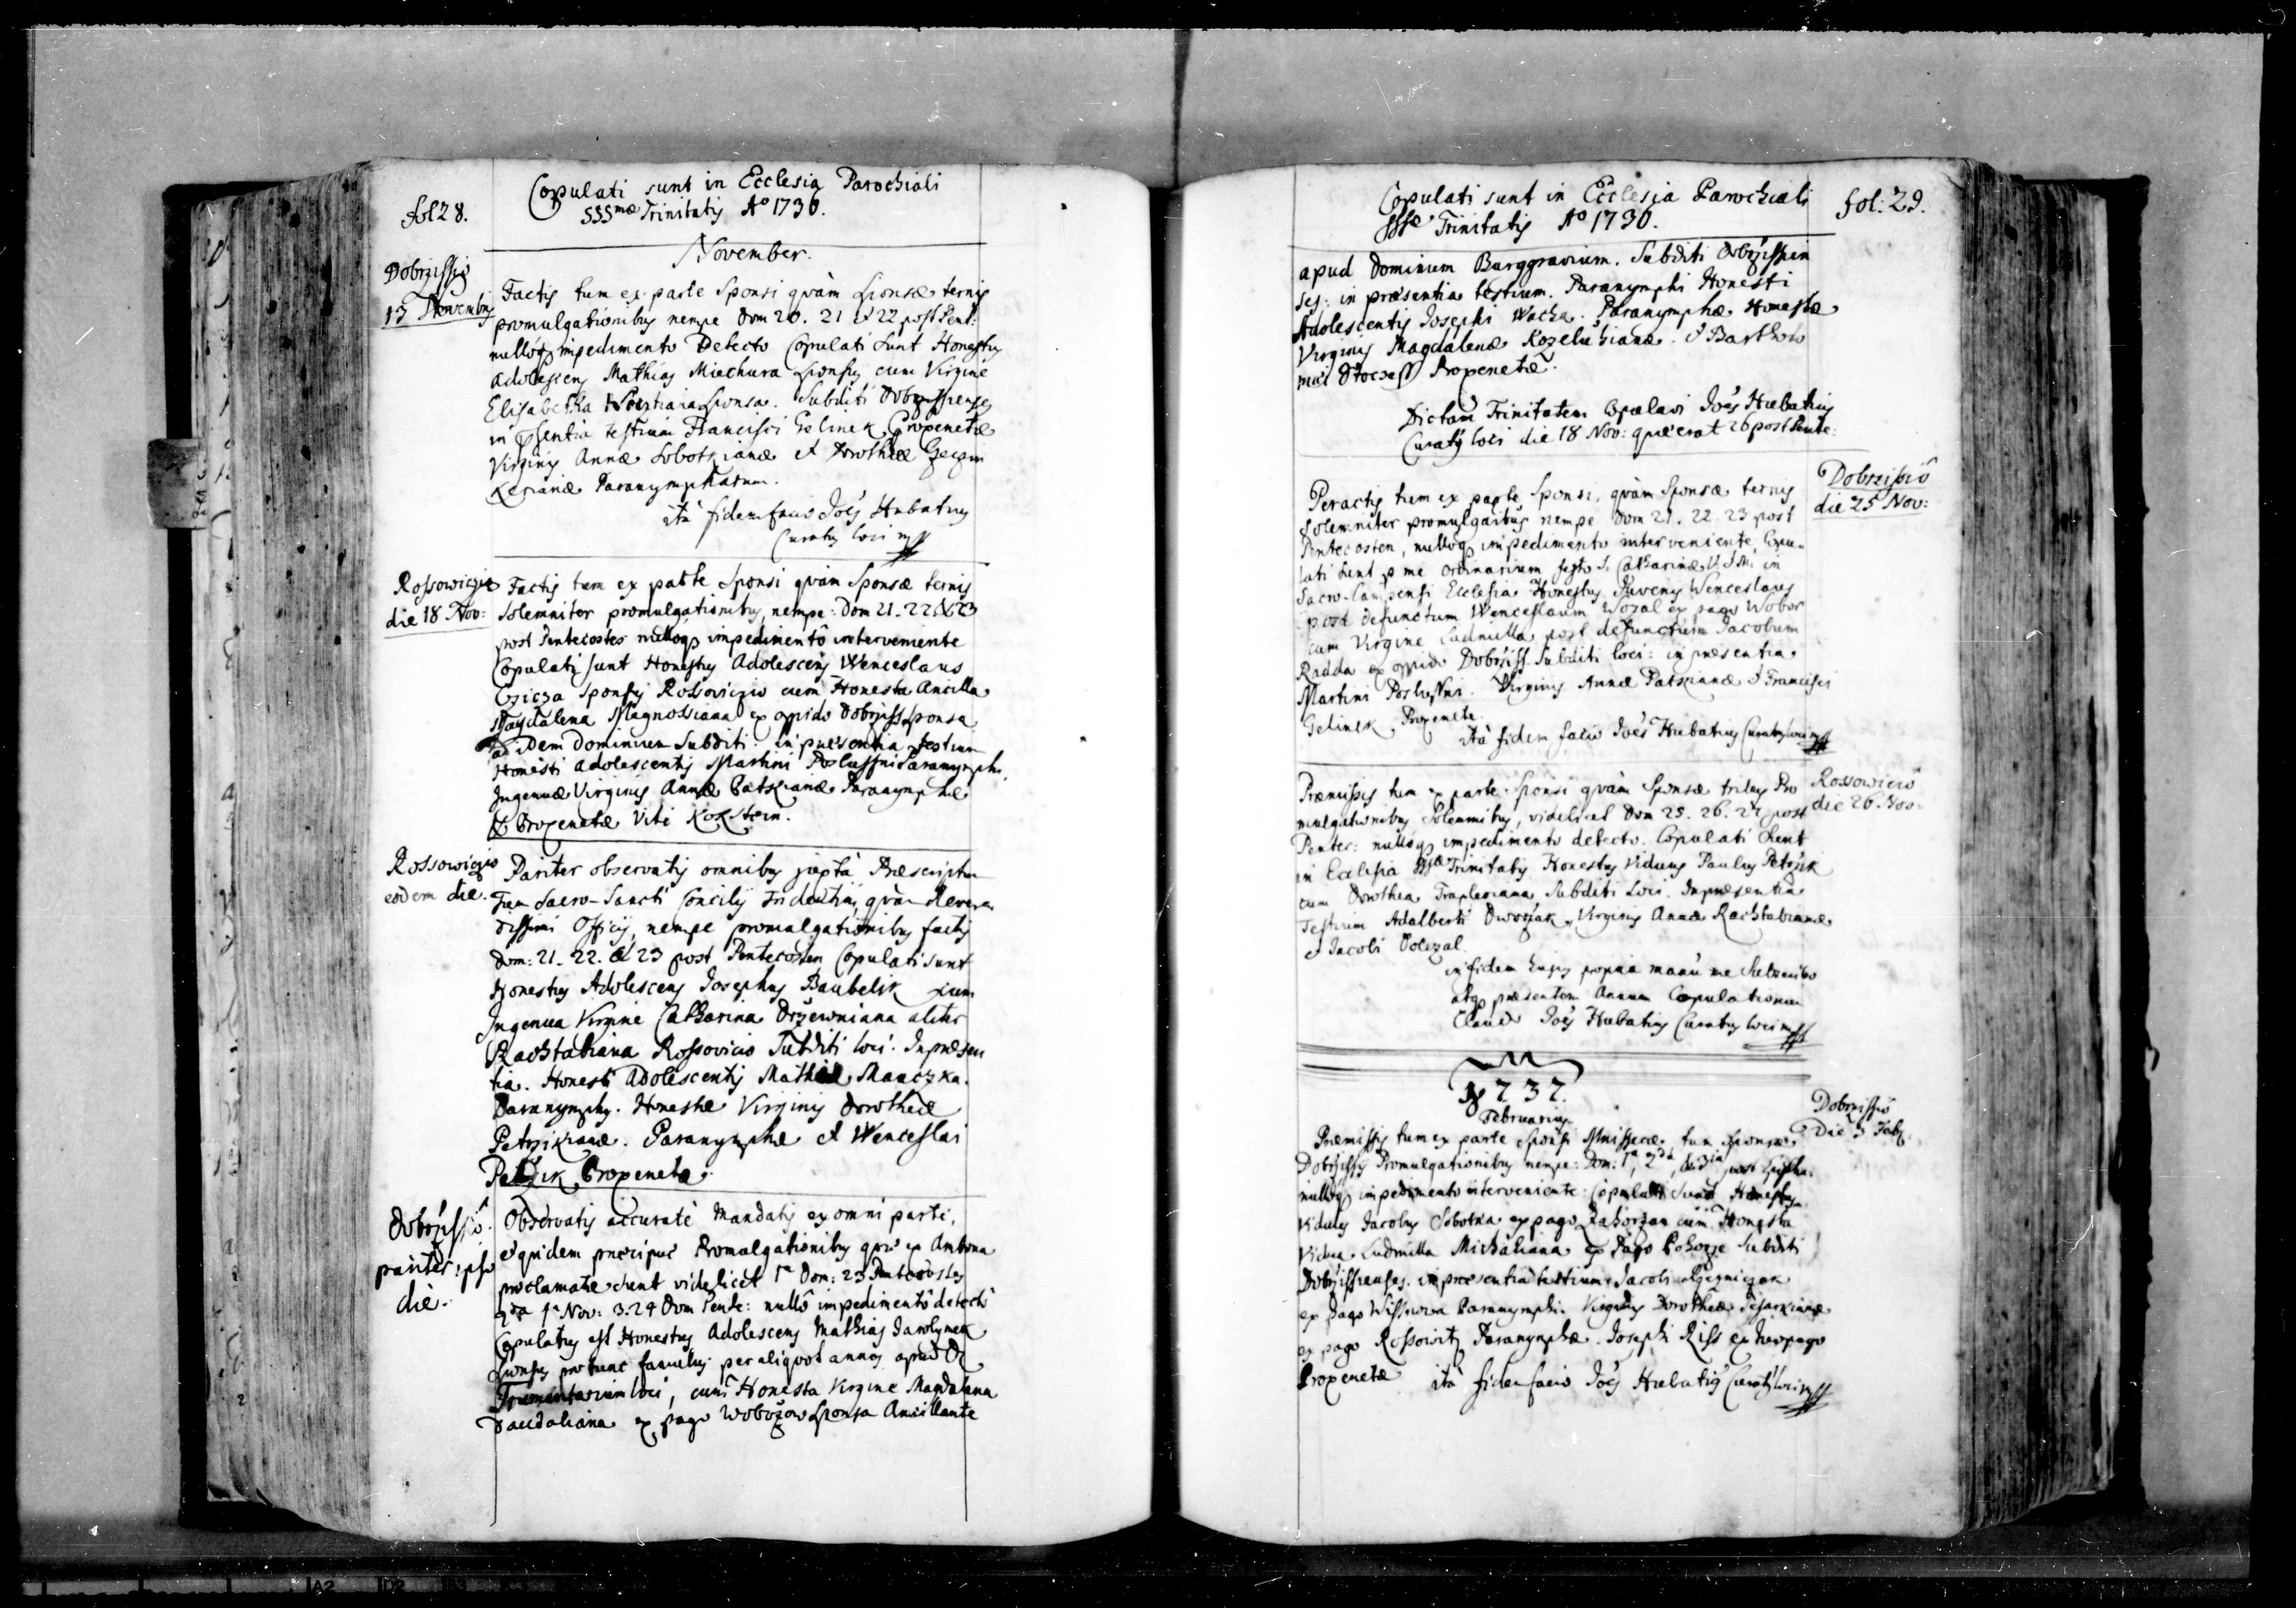 fol 28.
Copulati sunt in Ecclesia Parochiali
SSSmæ Trinitatis Aº 1736.
November.
Dobrzissio
13 Novembris
Factis tum ex parte Sponsi quàm Sponsæ ternis
promulgationibus nempe Dom 20. 21 et 22 post Pent:
nulloq impedimento Detecto Copulati sunt Honestus
Adolescens Mathias Miechura Sponsus cum Virgine
Elisabetha Sponsa. Subditi Dobrzissienses
in Psentia testium Francisci Gelinek Propenetæ
Virginis Annæ Sobotkianæ et Dorotheæ
Kerianæ Paranympharum.
ità fidem facio Joës Hubatius
Curatus loci mpp
Rossowiczio
die 18 Nov:
Factis tum ex parte Sponsi quàm Sponsæ ternis
solemniter promulgationibus, nempe: Dom 21. 22. & 23
post Pentecostes nulloq impedimentô interveniente
Copulati sunt Honestus Adolescens Wenceslaus
Cziczza Sponsus Rossoviczio cum Honesta Ancilla
Magdalena Magnossiana ex oppido Dobrziss Sponsa
ad idem Dominium Subditi. in præsentia testium
Honesti Adolescentis Martini Poslussni Paranymphi,
Ingenuæ Virginis Annæ Patskianæ Paranymphæ
& Propenetæ Viti Kokstein.
Rossowiczio
eodem die.
Pariter observatis omnibus juxtà Præscriptum
Tum Sacro-Sancti Concilij Tridentini, quàm Reveren
dissimi Officij, nempe promulgationibus factis
Dom: 21. 22. & 23 post Pentecosten Copulati sunt
Honestus Adolescens Josephus Baubelik cum
Ingenua Virgine Catharina Drzewniana aliter
Rachtabiana Rossovicio Subditi loci. In præsen
tia. Honesti Adolescentis Mathiæ Manczka.
Paranymphy. Honestæ Virginis Dorotheæ
Petrzikianæ. Paranymphæ et Wenceslai
Petrzik Propenetæ.
Dobrzissiô.
pariter ipso
die.
Observatis accuratè Mandatis ex omni parte,
equidem præcipuè Promulgationibus quæ ex Ambona
proclamatæ sunt videlicet 1a Dom: 23 Pentecostes
2da 1a Nov: 3. 24 Dom Pente: nullô impedimentô detectô
Copulatus est Honestus Adolescens Mathias Jarolymek
Sponsus pro tunc famulus per aliquot annos apud D
Frumentarium loci, cum Honesta Virgine Magdalena
Daudaliana ex pago Wobozow Sponsa Ancillante
Copulati sunt in Ecclesia Parochiali
SSSæ Trinitatis Aº 1736.
fol: 29.
apud Dominum Burggravium. Subditi Dobrzissien
ses: in præsentia testium. Paranymphi Honesti
Adolescentis Josephi Wacha. Paranymphæ Honestæ
Virginis Magdalenæ Kozeluhianæ. & Bartholo
mæi Propenetæ.
Dictam Trinitatem Copulavi Joës Hubatius
Curatus loci die 18 Nov: quæ erat 26 post Pente:
Dobrzissiô
die 25 Nov:
Peractis tum ex parte Sponsi, quàm Sponsæ ternis
solemniter promulgatibus nempe Dom 21. 22. 23 post
Pentecosten, nulloq impedimento interveniente, Copu-
lati sunt p me ordinarium festo S. Catharinæ V. & M. in
Sacro-Campensi Ecclesia Honestus Juvenis Wenceslaus
post defunctum Wenceslaum Wozal ex pago Wobor
cum Virgine Ludmilla post defunctum Jacobum
Radda ex oppido Dobrziss. Subditi loci: in præsentia
Martini Poslussni. Virginis Annæ Patskianæ & Francisci
Gelinek Propenetæ.
ità fidem facio Joës Hubatius Curatus loci mpp
Rossowiciô
die 26. Nov:
Præmissis tum ex parte Sponsi quàm Sponsæ tribus Pro
mulgationibus Solemnibus, videlicet Dom 25. 26. 27 post
Pentec: nulloq impedimento detecto. Copulati sunt
in Ecclesia SSSæ Trinitatis Honestus Viduus Paulus Petrzik
cum Dorothea Subditi Loci. In præsentia
Testium Adalberti Dworzak, Virginis Annæ Rachtabianæ
et Jacobi Dolezal.
in fidem hujus propria manu me Subscribo
atq præsentem Annum Copulationum
Claudo Joës Hubatius Curatus loci mpp
1737.
Februarius
Dobrzissiô
Die 3 Feb.
Præmissis tum ex parte Sponsi Mnissecæ, tum Sponsæ
Dobrzissij Promulgationibus nempe: Dom: 1a, 2da, & 3ia post Epipha:
nulloq impedimento interveniente: Copulati Sunt Honestus
Viduus Jacobus Sobotka ex pago Zahorzan cum Honesta
Vidua Ludmilla Michaliana ex Pago Subditi
Dobrzissienses. in præsentia testium Jacobi
ex pago Wissowa Paranymphi. Virginis Dorotheæ Tesarkianæ
ex pago Rossowitz Paranymphæ. Josephi Riss ex pago
Propenetæ ità fidem facio Joës Hubatius Curatus loci mpp